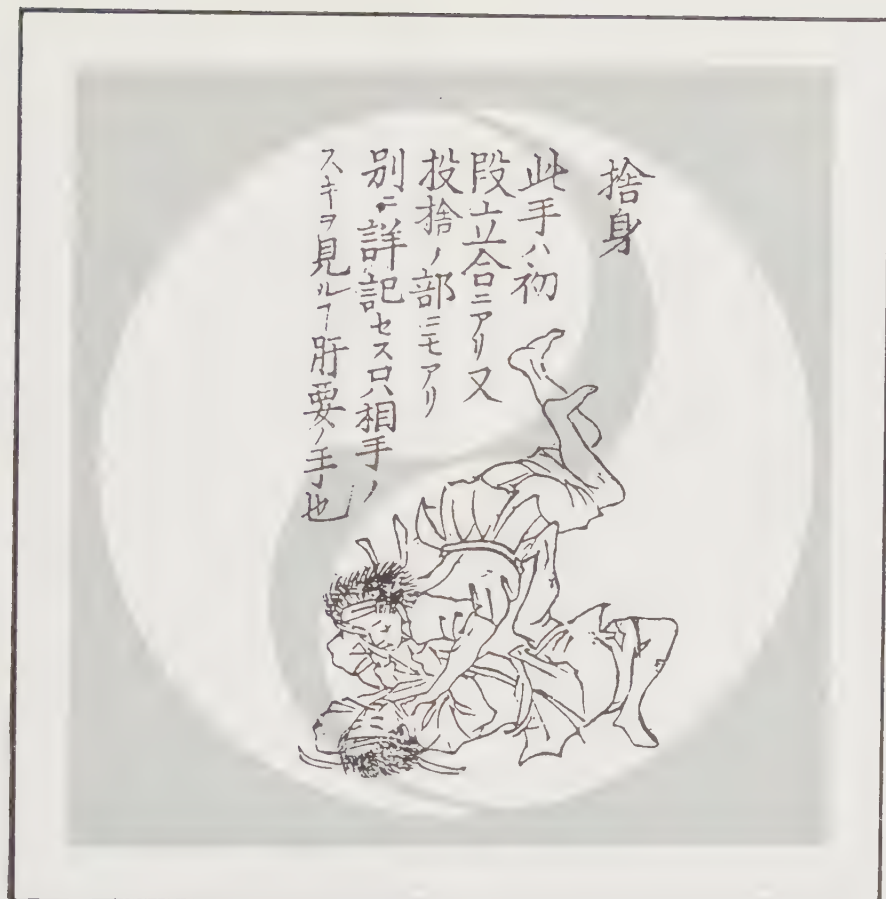 捨身
此手ハ初
段立合ニアリ又
投捨ノ部ニモアリ
別ニ詳記セス只相手ノ
スキヲ見ルヿ肝要ノ手也